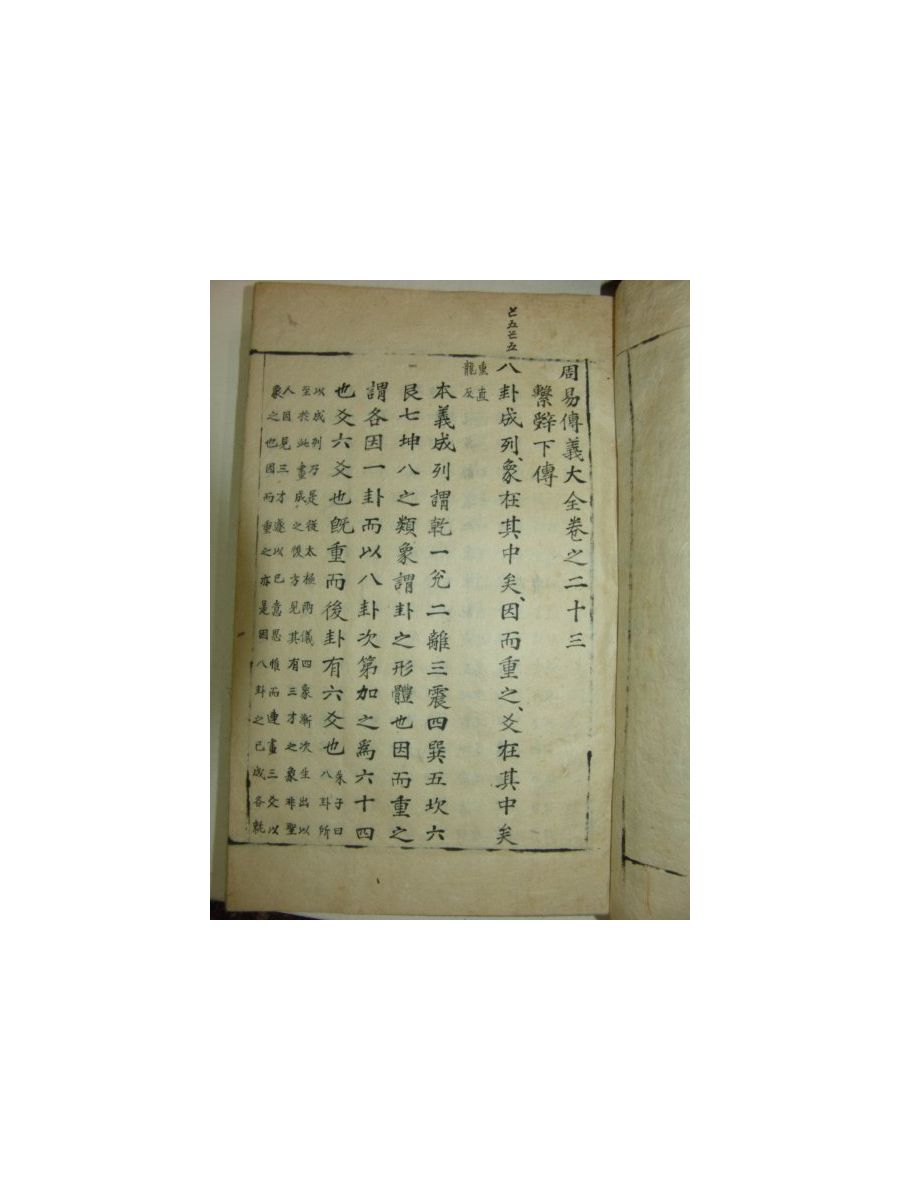 周易傳義大全卷之二十三
繫辤下傳
八卦成列、象在其中矣、因而重之、爻在其中矣
重直
龍反
本義成列謂乾一兊二離三震四巽五坎六
艮七坤八之類象謂卦之形體也因而重之
謂各因一卦而以八卦次第加之爲六十四
也爻六爻也旣重而後卦有六爻也
朱子曰
八卦所
以成列乃是從太極兩儀四象漸次生出以
至於此畫成之後方見其有三才之象非聖
人因見三才遂以己意思惟而連畫三爻以
象之也因而重之亦是因八卦之已成各就